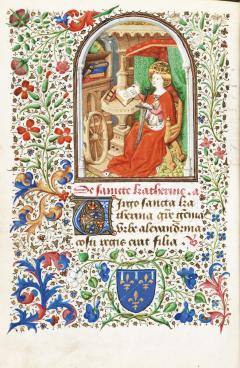 De sancte katherine. a
Virgo sancta ka
therina grecie gemma
Urbe alexandrina
costi regis erat filia